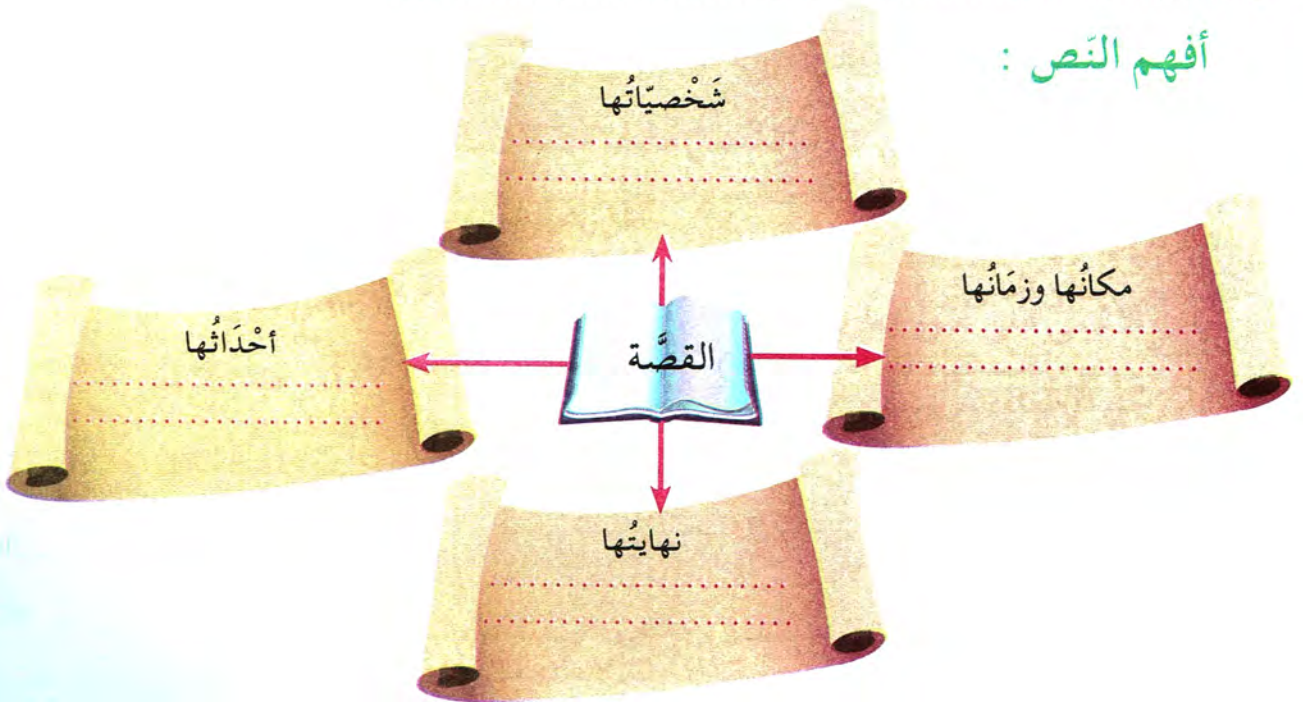 أفهم النّص :
شَخْصيّاتُها
........................
........................
مكانُها وزمَانُها
........................
........................
القصَّة
أحْدَاثُها
........................
........................
نهايتُها
........................
........................